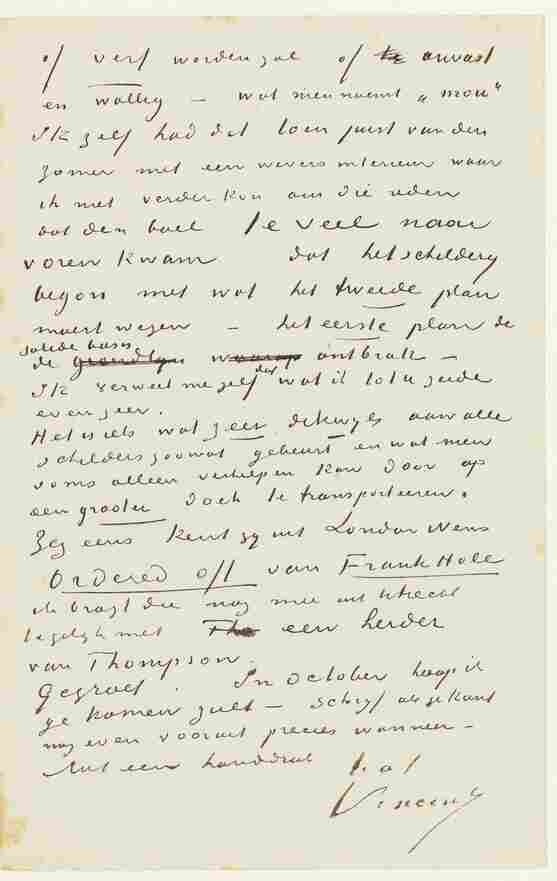 of verf worden zal of te onvast
en wollig – wat men noemt „mou"
Ik zelf had dat toen juist van den
zomer met een wevers interieur waar
ik niet verder kon om die reden
dat den boel te veel naar
voren kwam dat het schildery
begon met wat het tweede plan
moest wezen – het eerste plan de
solide basis
de waarop ontbrak –
Ik verweet me zelf dat wat ik tot u zeide
even zeer.
Het is iets wat zeer dikwyls aan alle
schilders zoowat gebeurt en wat men
soms alleen verhelpen kan door op
een grooter doek te transporteeren.
Zeg eens kent gy uit London News
Ordered off van Frank Holl
ik bragt die nog mee uit Utrecht
tegelyk met The een herder
van Thompson.
Gegroet. In October hoop ik
ge komen zult – schryf als ge kunt
nog even vooruit precies wanneer –
Met een handdruk t. à t.
Vincent